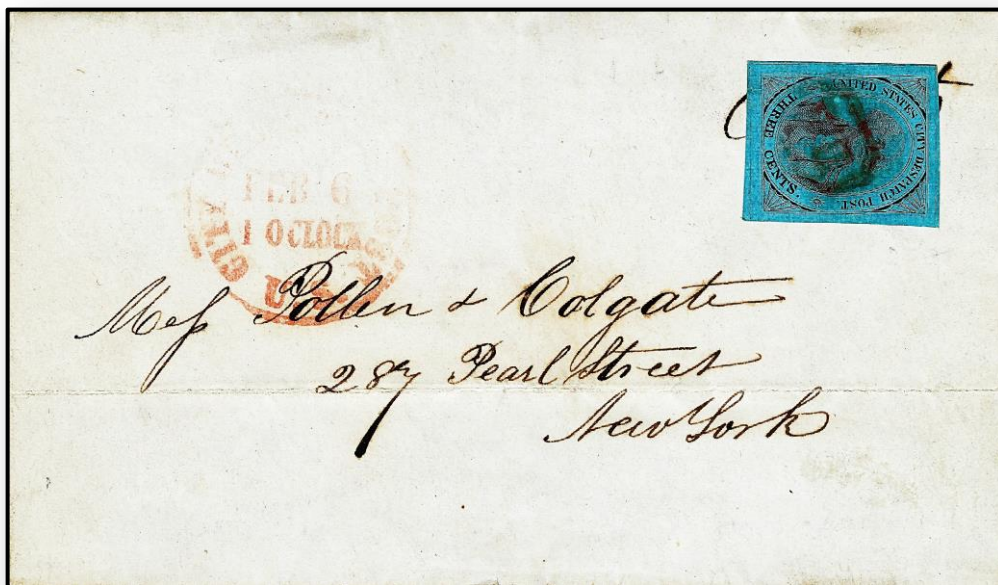 UNITED STATES CITY DESPATCH POST.
THREE CENTS.
CITY
FEB 6
1 OCLOCK
U.S.
Mess Pollen & Colgate
287 Pearl Street
New York